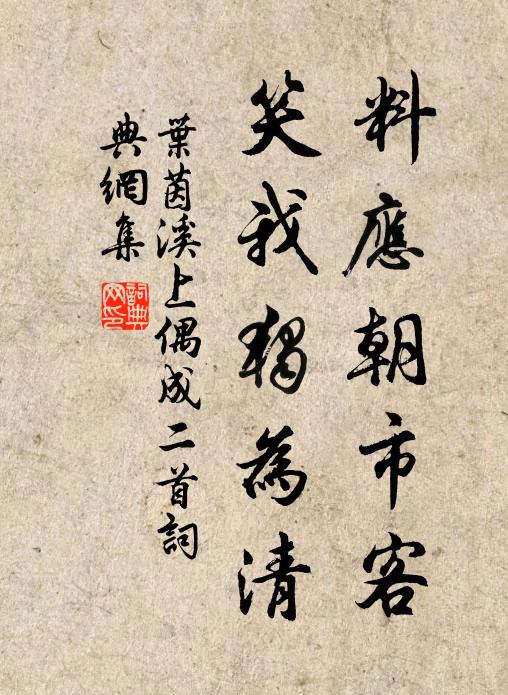 料應朝市客
笑我獨為清
葉茵溪上偶成二首詞
典網集
詞典網印